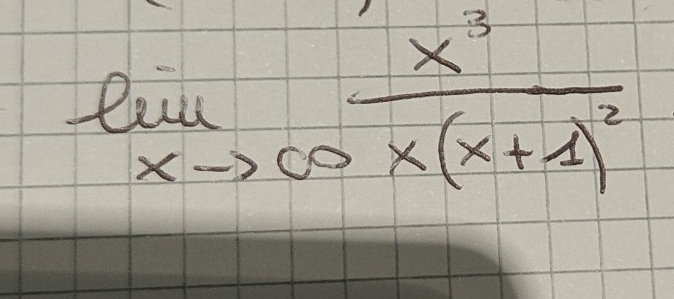 lim x→∞ x³ / x(x+1)²